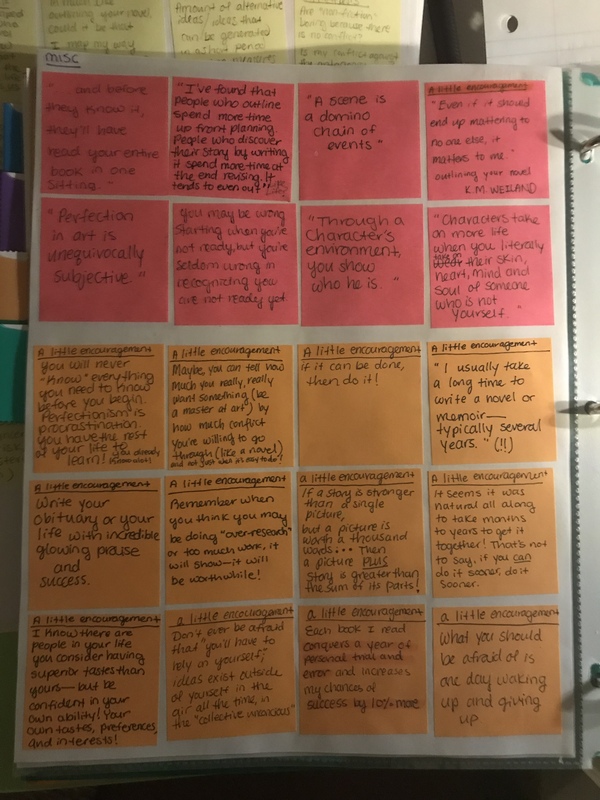 In much like
outlining your novel,
could it be that
I met my way
Amount of alternative
ideas/ideas that
can be generated
in a short period
Are "non-fiction"
being because there
is no conflict
Is my conflict against
misc
" and before
they know it,
they'll have
read your entire
book in one
sitting. "
"I've found that
people who outline
spend more time
up front planning.
People who discover
their story by writing
it spend more time at
the end revising. It
tends to even out."
"A scene is
a domino
chain of
events"
A little encouragement
"Even if it should
end up mattering to
no one else, it
matters to me."
outlining your novel
K.M. WEILAND
"Perfection
in art is
unequivocally
subjective."
you may be wrong
starting when you're
not ready, but you're
seldom wrong in
recognizing you
are not ready yet
"Through a
character's
environment,
you show
who he is. "
"Characters take
on more life
when you literally
take on
wear their skin,
heart, mind and
soul of someone
who is not
yourself."
A little encouragement
you will never
"know" everything
you need to know
before you begin.
Perfectionism is
procrastination.
you have the rest
of your life to
learn! you already
know alot!
A little encouragement
Maybe, you can tell how
much you really, really
want something (be
a master at art) by
how much conflict
you're willing to go
through (like a novel)
and not just when it's easy to do?
A little encouragement
if it can be done,
then do it!
A little encouragement
" I usually take
a long time to
write a novel or
memoir—
typically several
years. " (!!)
A little encouragement
Write your
Obituary or your
life with incredible
glowing praise
and
success.
A little encouragement
Remember when
you think you may
be doing "over-research"
or too much work, it
will show—it will
be worthwhile!
a little encouragement
If a story is stronger
than a single
picture,
but a picture is
worth a thousand
words... Then
a picture PLUS
story is greater than
the sum of its parts!
A little encouragement
It seems it was
natural all along
to take months
to years to get it
together! That's not
to say, if you can
do it sooner, do it
sooner.
A little encouragement
I know there are
people in your life
you consider having
superior tastes than
yours—but be
confident in your
own ability! Your
own tastes, preferences,
and interests!
a little encouragement
Don't ever be afraid
that "you'll have to
rely on yourself";
ideas exist outside
of yourself in the
air all the time, in
the "collective unconcious"
a little encouragement
Each book I read
conquers a year of
personal trial and
error and increases
my chances of
success by 10% more
a little encouragement
what you should
be afraid of is
one day waking
up and giving
up